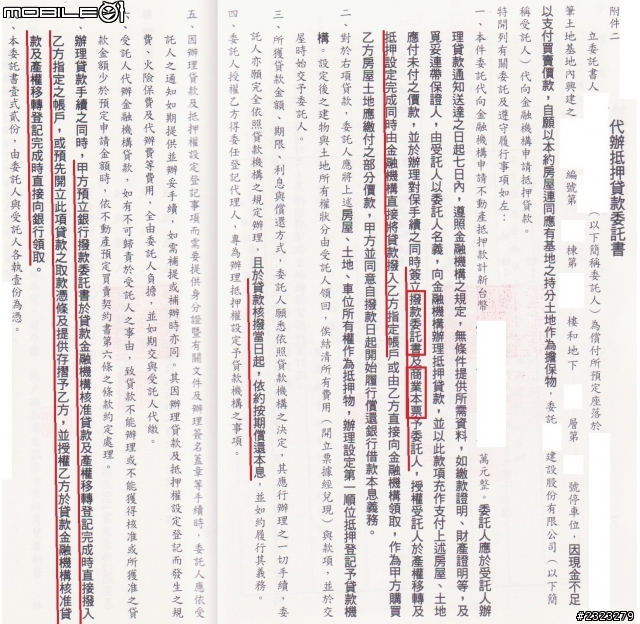 附件二
代辦抵押貸款委託書
立委託書人　　　　（以下簡稱委託人）為償付所預定座落於
筆土地基地內興建之　　編號第　　棟第　　樓和地下　　層第　　號停車位，因現金不足
以支付買賣價款，自願以本約房屋連同應有基地之持分土地作為擔保物，委託　　建設股份有限公司（以下簡
稱受託人）代向金融機構申請抵押貸款。
特開列有關委託及遵守履行事項如左：
一、本件委託代向金融機構申請不動產抵押款計新台幣　　　　萬元整。委託人應於受託人辦
理貸款通知送達之日起七日內，遵照金融機構之規定，無條件提供所需資料，如繳款證明、財產證明等，及
覓妥連帶保證人，由受託人以委託人名義，向金融機構辦理抵押貸款，並以此款項充作支付上述房屋、土地
應付未付之價款，並於辦理對保手續之同時簽立撥款委託書及商業本票予委託人，授權受託人於產權移轉及
抵押設定完成同時由金融機構直接將貸款撥入乙方指定帳戶或由乙方直接向金融機構領取，作為甲方購買
乙方房屋土地應繳付之部分價款，甲方並同意自撥款日起開始履行償還銀行借款本息義務。
二、對於右項貸款，委託人應將上述房屋、土地、車位所有權作為抵押物，辦理設定第一順位抵押登記予貸款機
構。設定後之建物與土地所有權狀分由受託人領回，俟結清所有費用（開立票據經兌現）與款項，並於交
屋時始交予委託人。
三、所獲貸款金額、期限、利息與償還方式，委託人願悉依照貸款機構之決定，其應行辦理之一切手續，委
託人亦願完全依照貸款機構之規定辦理，且於貸款核撥當日起，依約按期償還本息，並如約履行其義務。
四、委託人授權乙方得委任登記代理人，專為辦理抵押權設定予貸款機構之事項。
五、因辦理貸款及抵押權設定登記事項而需要提供身分證暨有關文件及辦理簽名蓋章等手續時，委託人應依受
託人之通知如期提供並辦妥手續，如需補提或補辦時亦同。其因辦理貸款及抵押權設定登記而發生之規
費、火險保費及代辦費等費用，全由委託人負擔，並如期交與受託人代繳。
六、受託人代辦金融機構貸款，如有不可歸責於受託人之事由，致貸款不能辦理或不能獲得核准或所獲准之貸
款金額少於預定申請金額時，依不動產預定買賣契約書第六條之條款約定處理。
辦理貸款手續之同時，甲方預立銀行撥款委託書於貸款金融機構核准貸款及產權移轉登記完成時直接撥入
乙方指定之帳戶，或預先開立此項貸款之取款憑條及提供存摺予乙方，並授權乙方於貸款金融機構核准貸
款及產權移轉登記完成時直接向銀行領取。
、本委託書壹式貳份，由委託人與受託人各執壹份為憑。
mobile01
#2323279